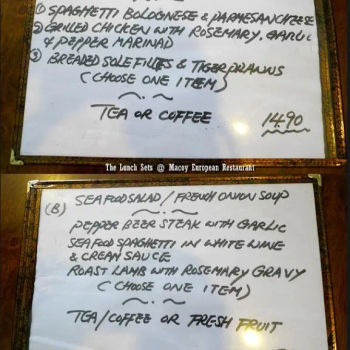 ① SPAGHETTI BOLOGINESE & PARMESAN CHEESE
② GRILLED CHICKEN WITH ROSEMARY, GARLIC
& PEPPER MARINAD
③ BREADED SOLE FILLES & TIGER PRAWNS
(CHOOSE ONE ITEM)
TEA OR COFFEE 1490
The Lunch Sets @ Macoy European Restaurant
(B) SEAFOOD SALAD / FRENCH ONION SOUP
PEPPER BEER STEAK WITH GARLIC
SEAFOOD SPAGHETTI IN WHITE WINE
& CREAM SAUCE
ROAST LAMB WITH ROSEMARY GRAVY
(CHOOSE ONE ITEM)
TEA/COFFEE OR FRESH FRUIT